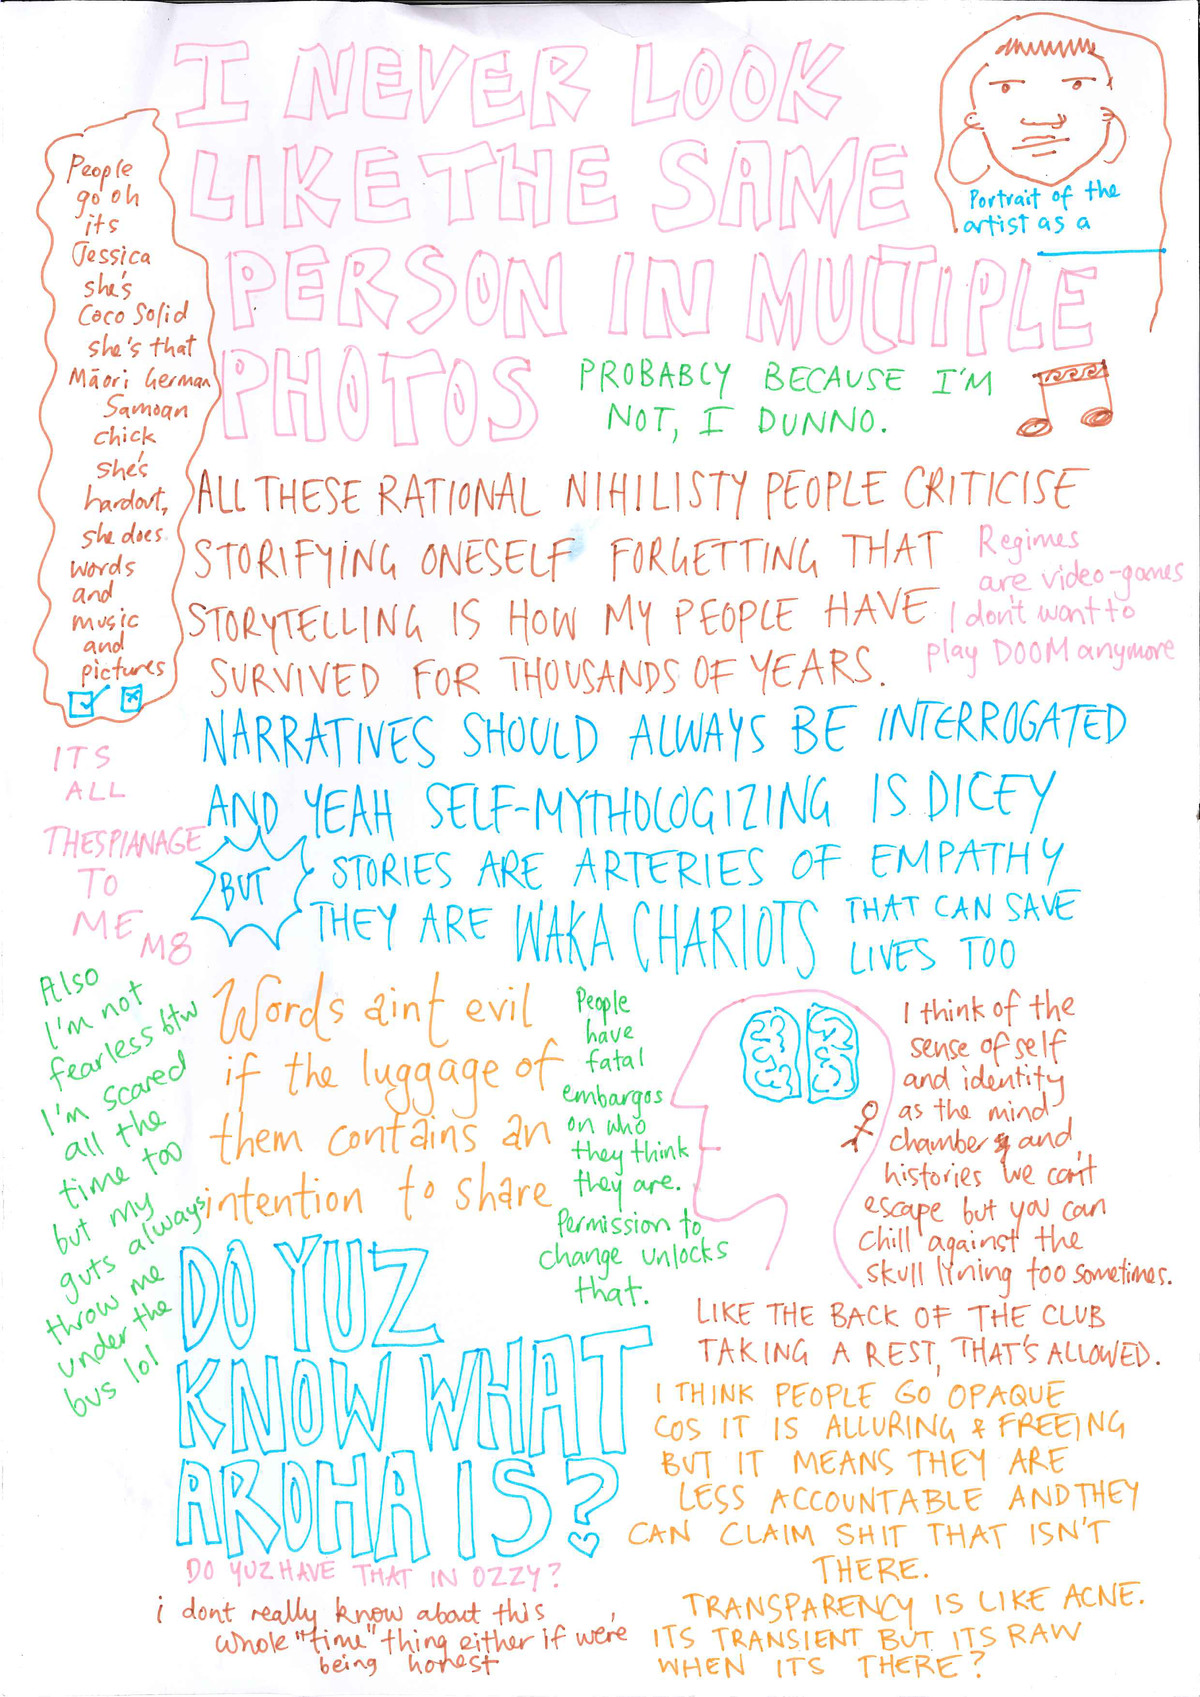 I NEVER LOOK
LIKE THE SAME
PERSON IN MULTIPLE
PHOTOS
PROBABLY BECAUSE I'M
NOT, I DUNNO.
Portrait of the
artist as a
People
go oh
its
Jessica
she's
Coco Solid
she's that
Māori German
Samoan
chick
she's
hardout,
she does
words
and
music
and
pictures
ALL THESE RATIONAL NIHILISTY PEOPLE CRITICISE
STORIFYING ONESELF FORGETTING THAT
STORYTELLING IS HOW MY PEOPLE HAVE
SURVIVED FOR THOUSANDS OF YEARS.
Regimes
are video-games
I don't want to
play DOOM anymore
NARRATIVES SHOULD ALWAYS BE INTERROGATED
AND YEAH SELF-MYTHOLOGIZING IS DICEY
BUT
STORIES ARE ARTERIES OF EMPATHY
THEY ARE WAKA CHARIOTS THAT CAN SAVE
LIVES TOO
ITS
ALL
THESPIANAGE
TO
ME
M8
Also
I'm not
fearless btw
I'm scared
all the
time too
but my
guts always
throw me
under the
bus lol
Words aint evil
if the luggage of
them contains an
intention to share
People
have
fatal
embargos
on who
they think
they are.
Permission to
change unlocks
that.
I think of the
sense of self
and identity
as the mind
chamber and
histories we can't
escape but you can
chill against the
skull lyning too sometimes.
LIKE THE BACK OF THE CLUB
TAKING A REST, THAT'S ALLOWED.
DO YUZ
KNOW WHAT
AROHA IS?
DO YUZ HAVE THAT IN OZZY?
i dont really know about this
whole "time" thing either if we're
being honest
I THINK PEOPLE GO OPAQUE
COS IT IS ALLURING & FREEING
BUT IT MEANS THEY ARE
LESS ACCOUNTABLE AND THEY
CAN CLAIM SHIT THAT ISN'T
THERE.
TRANSPARENCY IS LIKE ACNE.
ITS TRANSIENT BUT ITS RAW
WHEN ITS THERE?